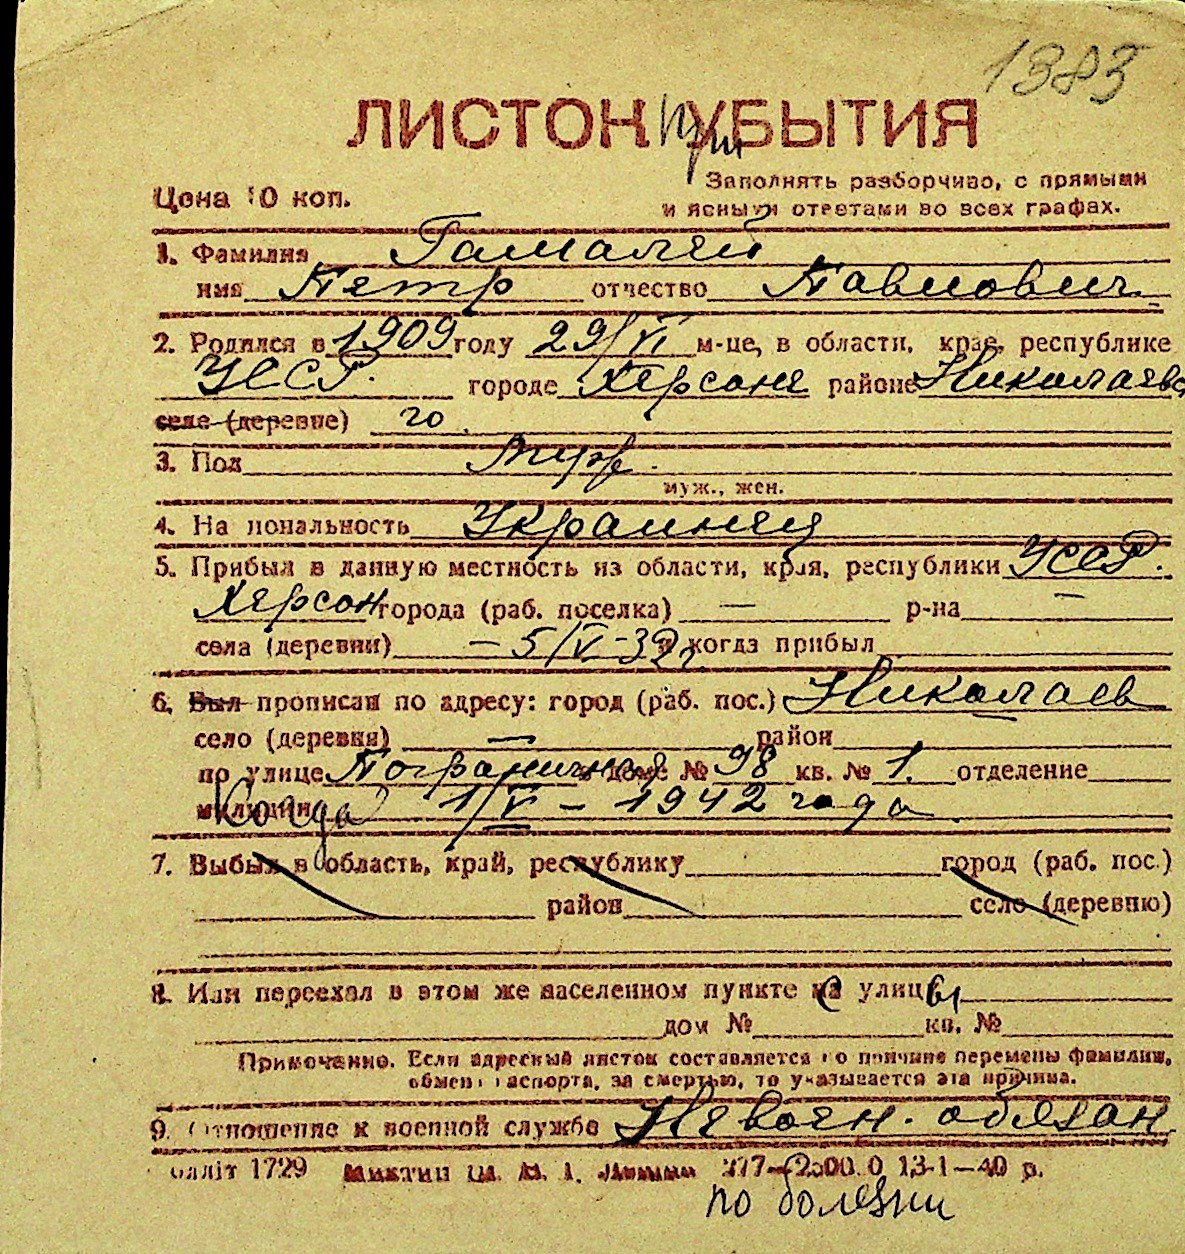 1383
ЛИСТОК при УБЫТИЯ
Цена 10 коп.
Заполнять разборчиво, с прямыми
и ясными ответами во всех графах.
1. Фамилия Гамалей
имя Петр отчество Павлович
2. Родился в 1909 году 29/VI м-це, в области, крае, республике
УССР. городе Херсоне районе Николаевско
селе (деревне) го.
3. Пол Муж.
муж., жен.
4. Национальность Украинец
5. Прибыл в данную местность из области, края, республики УССР.
Херсон города (раб. поселка) — р-на —
села (деревни) — 5/V-32 г и когда прибыл
6. Был прописан по адресу: город (раб. пос.) Николаев
село (деревня) — район
по улице Пограничная в доме № 98 кв. № 1. отделение
милиции Когда 1/V – 1942 года.
7. Выбыл в область, край, республику город (раб. пос.)
район село (деревню)
8. Или переехал в этом же населенном пункте на с улицы
дом № кв. №
Примечание. Если адресный листок составляется по причине перемены фамилии,
обмена паспорта, за смертью, то указывается эта причина.
9. Отношение к военной службе Не воен. обязан
1729 13-1—40 р.
по болезни